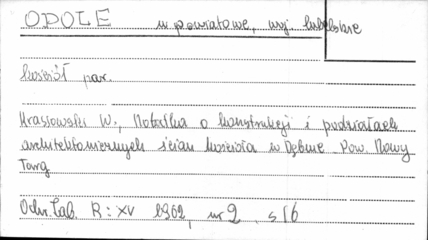 OPOLE m powiatowe, woj lubelskie
kościół par.
Krassowski W., Notatka o konstrukcji i podziałach
architektonicznych ścian kościoła w Dębnie Pow. Nowy
Targ
Odr. Zab. R: XV 1962, nr 2, s 16